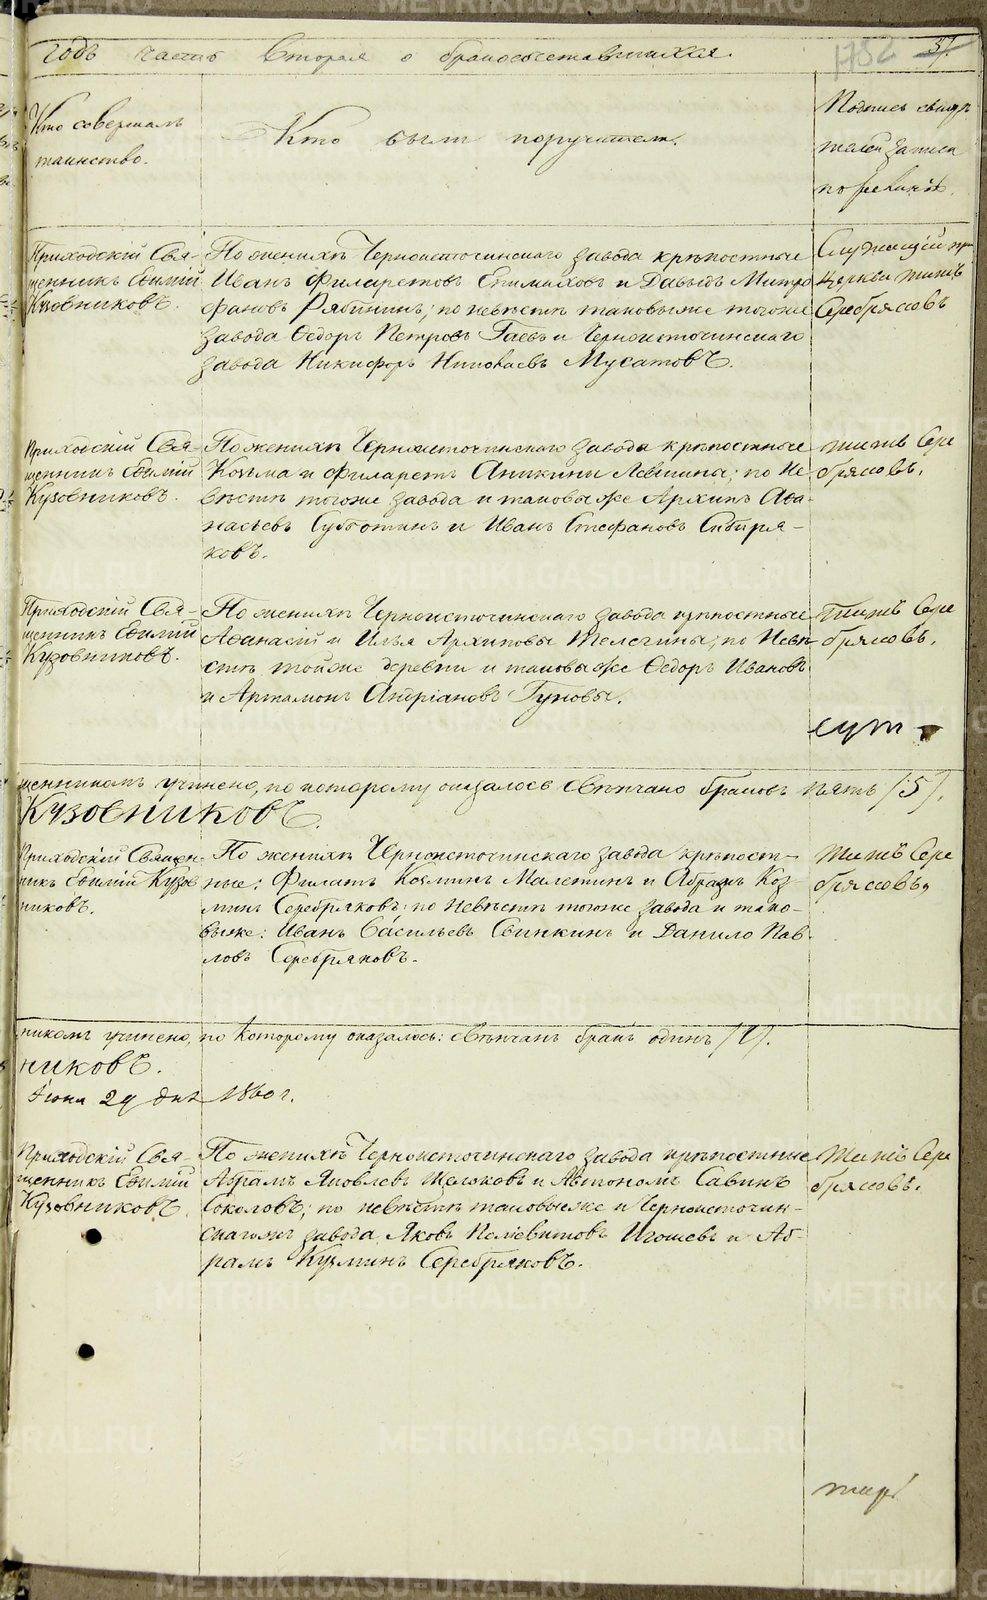 годъ часть вторая о бракосочетавшихся.
1782 37.
Кто совершалъ
таинство.
Кто были поручители.
Подпись свидѣ
телей записи
по желанію.
Приходскій Свя-
щенникъ Евфимій
Кузовниковъ.
По женихѣ Черноисточинскаго завода крѣпостные
Иванъ Филаретовъ и Давыдъ Митро
фановъ Рябининъ; по невѣстѣ таковыеже тогоже
завода Ѳедоръ Петровъ Гаевъ и Черноисточинскаго
завода Никифоръ Николаевъ Мусатовъ.
Служащій при
церкви Титъ
Серебряковъ
Приходскій Свя-
щенникъ Евфимій
Кузовниковъ.
По женихѣ Черноисточинскаго завода крѣпостные
Козьма и Филаретъ Аникины Левшины; по не
вѣстѣ тогоже завода и таковыеже Архипъ Аѳа-
насьевъ Субботинъ и Иванъ Стефановъ Сибиря-
ковъ.
Титъ Сере
бряковъ.
Приходскій Свя-
щенникъ Евфимій
Кузовниковъ.
По женихѣ Черноисточинскаго завода крѣпостные
Аѳанасій и Илья Архиповы Телегины; по невѣ-
стѣ тойже деревни и таковыеже Ѳедоръ Ивановъ
и Артамонъ Андріановъ Гуновы.
Титъ Сере
бряковъ.
щенникомъ учинено, по которому оказалось свѣнчано браковъ пять /5/.
Кузовниковъ.
Приходскій Священ-
никъ Евфимій Кузов
никовъ.
По женихѣ Черноисточинскаго завода крѣпост-
ные: Филатъ Козминъ Малетинъ и Абрамъ Коз-
минъ Серебряковъ; по невѣстѣ тогоже завода и тако-
выеже: Иванъ Васильевъ Свинкинъ и Данило Пав-
ловъ Серебряковъ.
Титъ Сере
бряковъ.
никомъ учинено, по которому оказалось: свѣнчанъ бракъ одинъ /1/.
никовъ.
Іюня 29 дня 1860 г.
Приходскій Свя-
щенникъ Евфимій
Кузовниковъ.
По женихѣ Черноисточинскаго завода крѣпостные
Абрамъ Яковлевъ и Автономъ Савинъ
Соколовъ; по невѣстѣ таковыеже и Черноисточин-
скагоже завода Яковъ Игошевъ и Аб-
рамъ Кузминъ Серебряковъ.
Титъ Сере
бряковъ.
METRIKI.GASO-URAL.RU